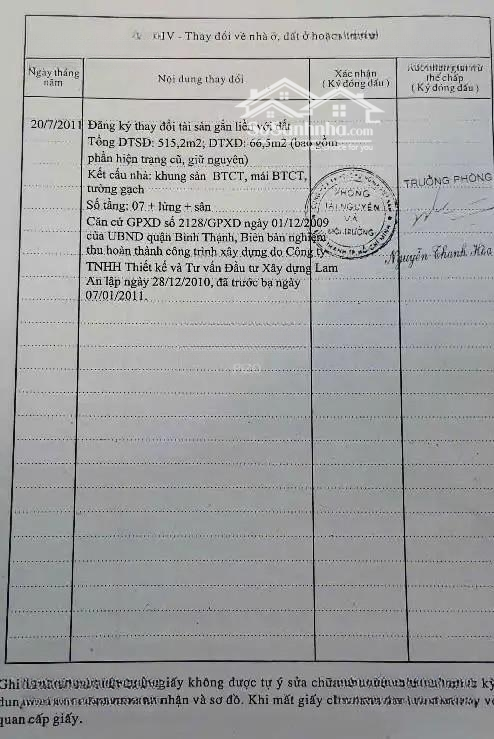 IV - Thay đổi về nhà ở, đất ở
Ngày tháng năm
Nội dung thay đổi
Xác nhận
( Ký đóng dấu )
thế chấp
( Ký đóng dấu )
20/7/2011 Đăng ký thay đổi tài sản gắn liền với đất
Tổng DTSD: 515,2m2; DTXD: 66,5m2 (bao gồm
phần hiện trạng cũ, giữ nguyên)
Kết cấu nhà: khung sàn BTCT, mái BTCT,
tường gạch
Số tầng: 07 + lửng + sân
Căn cứ GPXD số 2128/GPXD ngày 01/12/2009
của UBND quận Bình Thạnh, Biên bản nghiệm
thu hoàn thành công trình xây dựng do Công ty
TNHH Thiết kế và Tư vấn Đầu tư Xây dựng Lam
An lập ngày 28/12/2010, đã trước bạ ngày
07/01/2011.
PHÒNG
TÀI NGUYÊN
VÀ
MÔI TRƯỜNG
TRƯỞNG PHÒNG
Nguyễn Thanh Hòa
Ghi giấy không được tự ý sửa
nhận và sơ đồ. Khi mất giấy
quan cấp giấy.